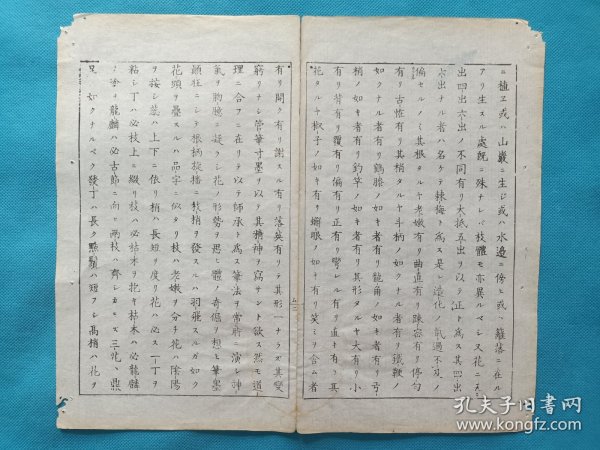 ニ植ヱ或ハ山巖ニ生ジ或ハ水邊ニ傍ヒ或ハ籬落ニ在ル
アリ生スル處既ニ殊ナレバ枝體モ亦異ルベシ又花ニ五
出四出六出ノ不同有リ大抵五出ヲ以テ正ト為ス其四出
六出ナル者ハ名ケテ棘梅ト為ス是レ造化ノ氣過不及ノ
偏セルノミ其根タルヤ老嫩有リ曲直有リ疎密有リ停勻
有リ古怪有リ其梢タルヤ斗柄ノ如クナル者有リ鐵鞭ノ
如クナル者有リ鶴膝ノ如キ者有リ龍角ノ如キ者有リ弓
梢ノ如キ者有リ釣竿ノ如キ者有リ其形タルヤ大有リ小
有リ背有リ覆有リ偏有リ正有リ彎レル有リ直キ有リ其
花タルヤ椒子ノ如キ有リ蟹眼ノ如キ有リ笑ミヲ含ム者
有リ開ク有リ謝スル有リ落英有リテ其形一ナラズ其變
窮リナシ管筆寸墨ヲ以テ其精神ヲ寫サント欲ス然モ道
理ニ合フニ在リ以テ師承ト為ス筆法ヲ常時ニ演シ神
氣ヲ胸臆ニ凝ラシ花ノ形勢ヲ思ヒ體ノ奇倔ヲ想ヒ筆墨
顛狂ニシテ根柄旋播ニ枝梢ヲ發スルハ羽飛スルガ如ク
花頭ヲ疊スルハ品字ニ似タリ枝ハ老嫩ヲ分チ花ハ陰陽
ヲ按シ蕊ハ上下ニ依リ梢ハ長短ヲ度リ花ハ必ス一丁ヲ
粘シ丁ハ必枝上ニ綴リ枝ハ必枯木ヲ抱キ枯木ハ必龍鱗
ヲ龍鱗ハ必古節ニ向ヒ兩枝ハ齊シカラズ三花ハ鼎
足ノ如クナルベク發丁ハ長ク點鬚ハ短フシ高梢ハ花ヲ
孔夫子旧书网
www.kongfz.com